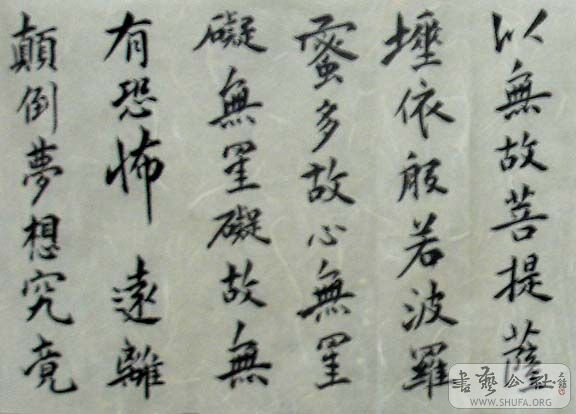 以無故菩提薩
埵依般若波羅
蜜多故心無罣
礙無罣礙故無
有恐怖 遠離
顛倒夢想究竟
書藝公社
WWW.SHUFA.ORG